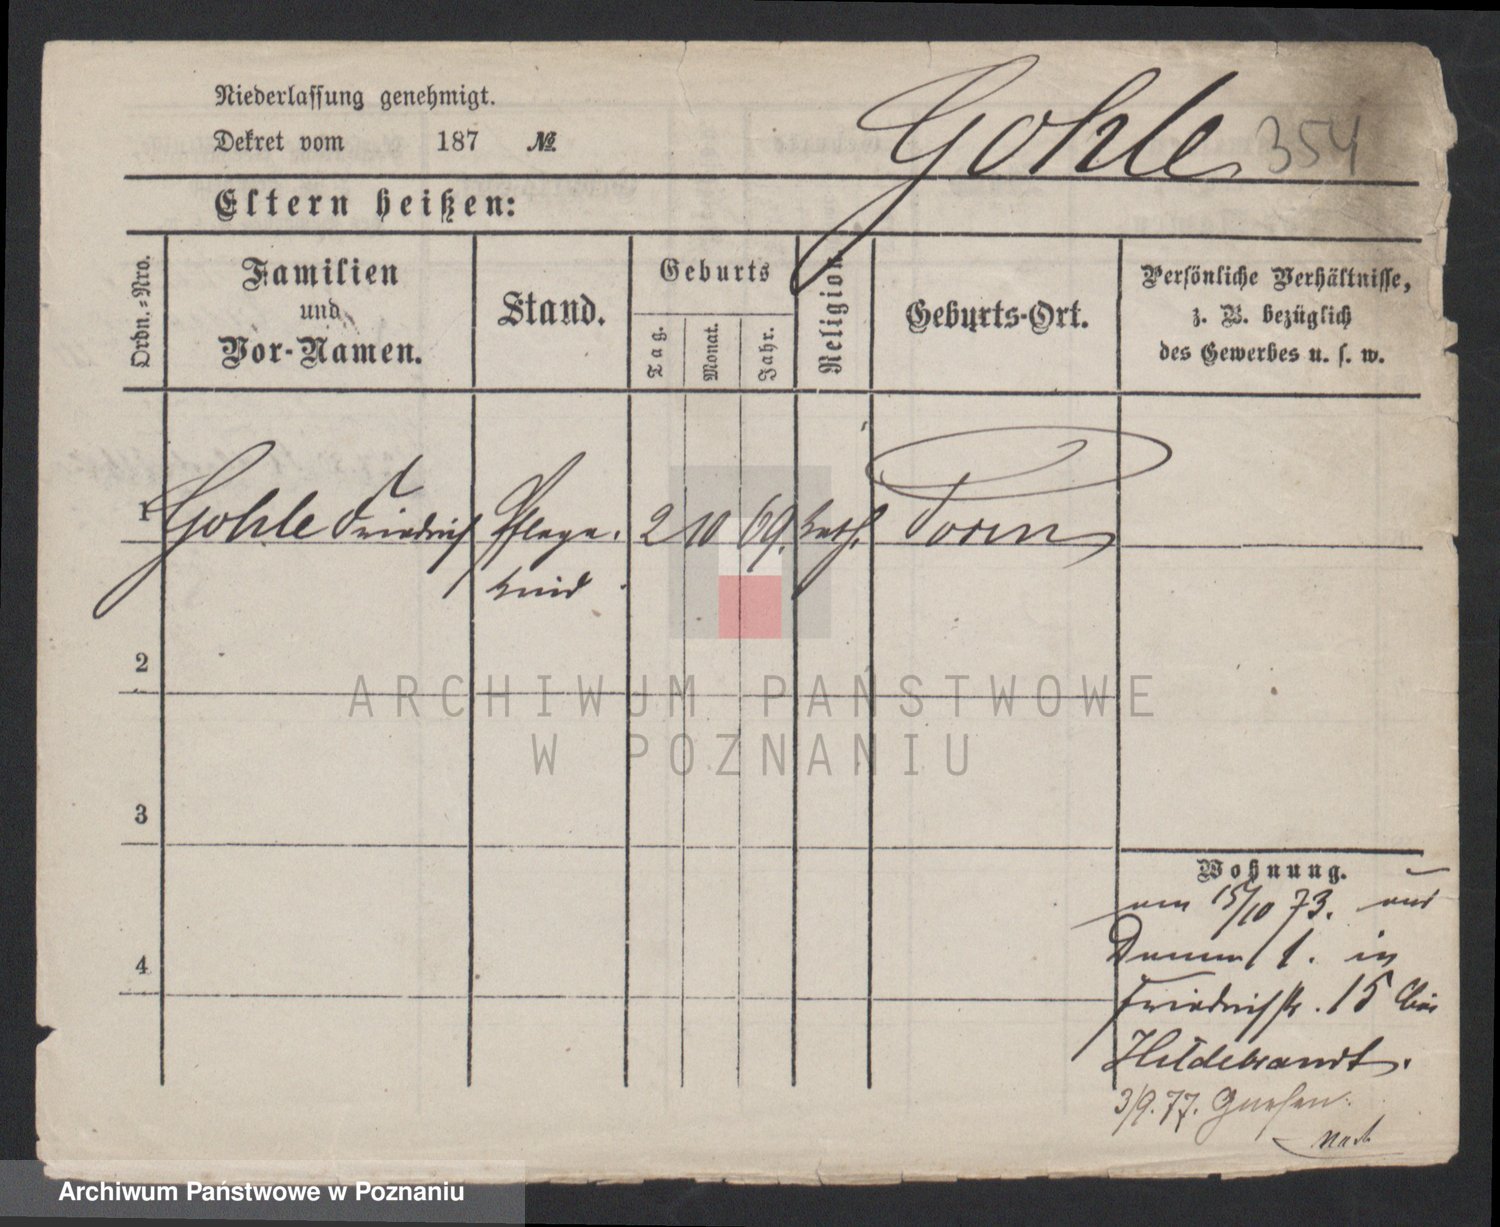 Niederlassung genehmigt.
Dekret vom 187 №
Gohle 354
Eltern heißen:
Ordn.-Nro.
Familien
und
Vor-Namen.
Stand.
Geburts
Tag.
Monat.
Jahr.
Religion
Geburts-Ort.
Persönliche Verhältnisse,
z. B. bezüglich
des Gewerbes u. s. w.
1 Gohle Friedrich Pflege- 2 10 69. kath. Posen
kind
2
ARCHIWUM PAŃSTWOWE
W POZNANIU
3
4
Wohnung.
15/10 73.
Damm 1. in
Friedrichstr. 15 bei
Hildebrandt.
3/9. 77. Gnesen
Archiwum Państwowe w Poznaniu